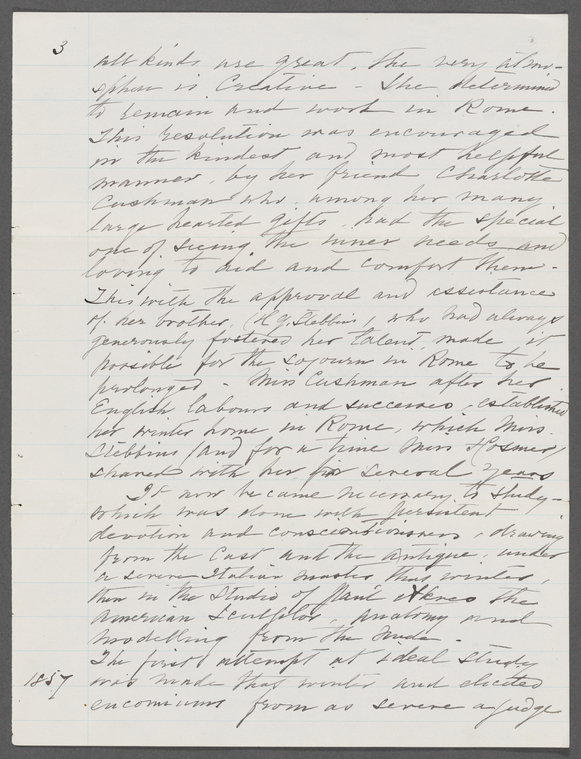 3
all kinds are great. The very atmos-
sphere is Creative - She determined
to remain and work in Rome.
This resolution was encouraged
in the kindest and most helpful
manner, by her friend Charlotte
Cushman who, among her many
large hearted gifts, had the special
one of seeing the inner needs and
loving to aid and comfort them.
This with the approval and assistance
of her brother, (H. G. Stebbins, who had always
generously fostered her talent, made it
possible for the sojourn in Rome to be
prolonged - Miss Cushman after her
English labours and successes, established
her winter home in Rome, which Miss
Stebbins (and for a time Miss Hosmer)
shared with her for several years
It now became necessary to study -
which was done with persistent
devotion and conscientiousness, drawing
from the Cast and the antique, under
a severe Italian master, that winter,
then in the Studio of Paul Akers the
American Sculptor, anatomy and
modelling from the nude.
The first attempt at ideal study
1857 was made that winter and elicited
encomiums from as severe a judge